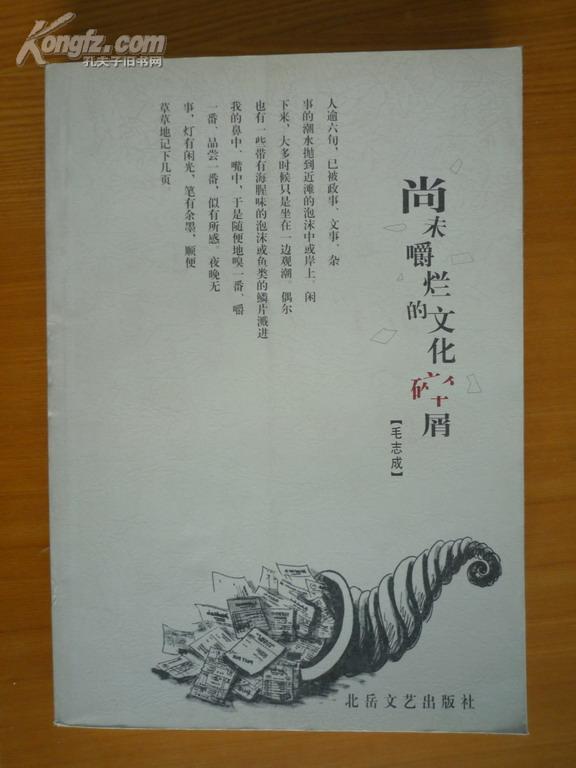 Kongfz.com
孔夫子旧书网
尚未嚼烂的文化碎屑
【毛志成】
人逾六旬，已被政事、文事、杂
事的潮水抛到近滩的泡沫中或岸上。闲
下来，大多时候只是坐在一边观潮。偶尔
也有一些带有海腥味的泡沫或鱼类的鳞片溅进
我的鼻中、嘴中，于是随便地嗅一番、嚼
一番、品尝一番，似有所感。夜晚无
事，灯有闲光，笔有余墨，顺便
草草地记下几页。
北岳文艺出版社